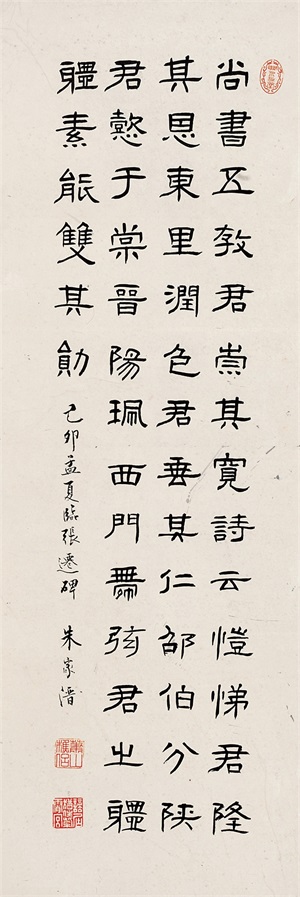 尚書五教君崇其寬詩云愷悌君隆
其恩東里潤色君垂其仁邵伯分陝
君懿于棠晉陽珮西門帶弦君之䪐
䪐素能雙其勛
己卯孟夏臨張遷碑 朱家濟